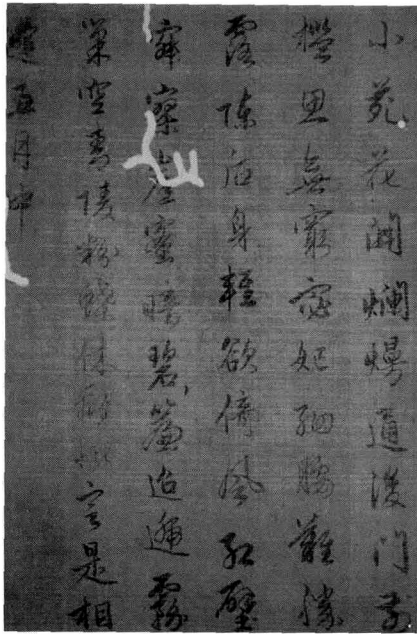 小苑花開爛熳通後門前
檻思無窮宓妃細腰難勝
露陳后身輕欲倚風紅壁
寂寥崖蜜暗碧簷迢遞霧
巢空青陵粉蝶休離恨定是相
逢五月中